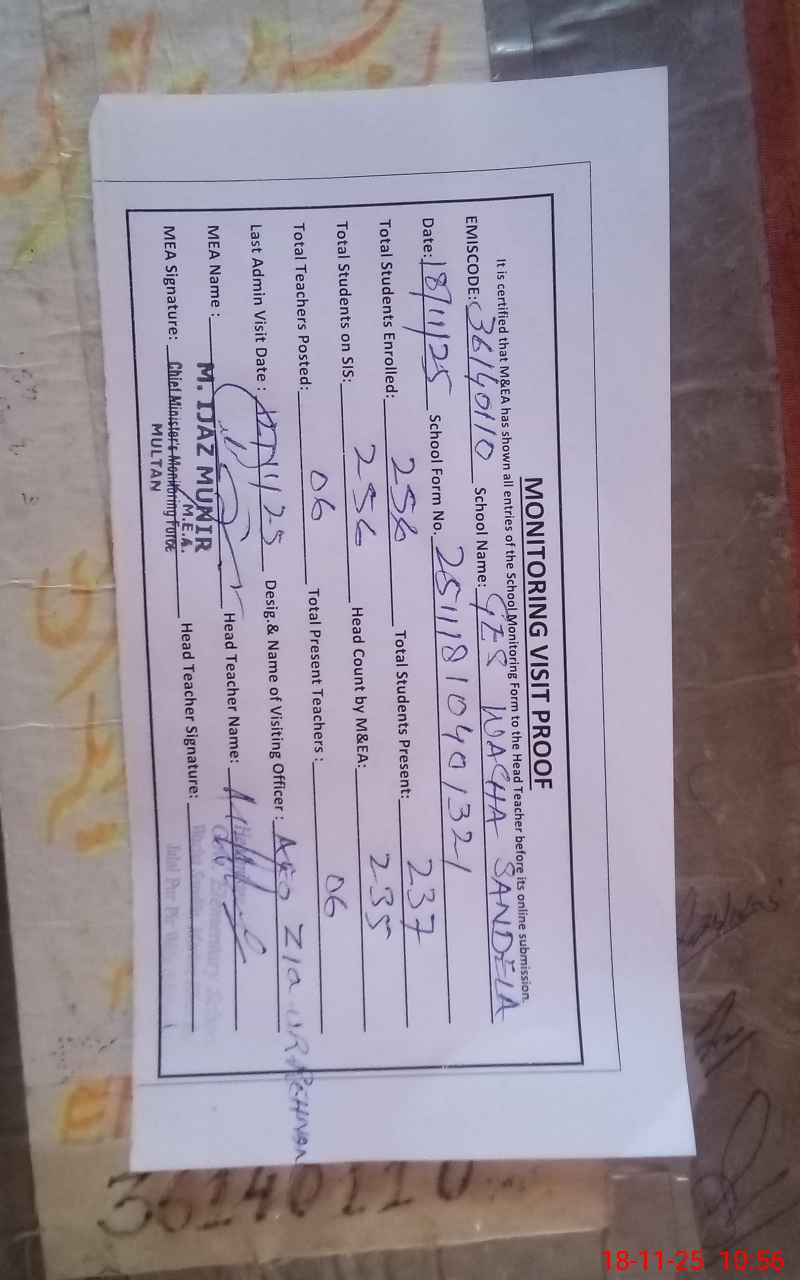 MONITORING VISIT PROOF
It is certified that M&EA has shown all entries of the School Monitoring Form to the Head Teacher before its online submission.
EMISCODE: 36140110 School Name: GES WACHA SANDEIA
Date: 18/11/25 School Form No. 25111810401321
Total Students Enrolled: 256 Total Students Present: 237
Total Students on SIS: 256 Head Count by M&EA: 235
Total Teachers Posted: 06 Total Present Teachers : 06
Last Admin Visit Date : /11/25 Desig.& Name of Visiting Officer : AEO Zia UR REHMAN
MEA Name : M. IJAZ MUNIR Head Teacher Name:
M.E.A.
MEA Signature: Chief Minister's Monitoring Force Head Teacher Signature:
MULTAN
Elementary School
Jalal Pur Pir
36140110
18-11-25 10:56